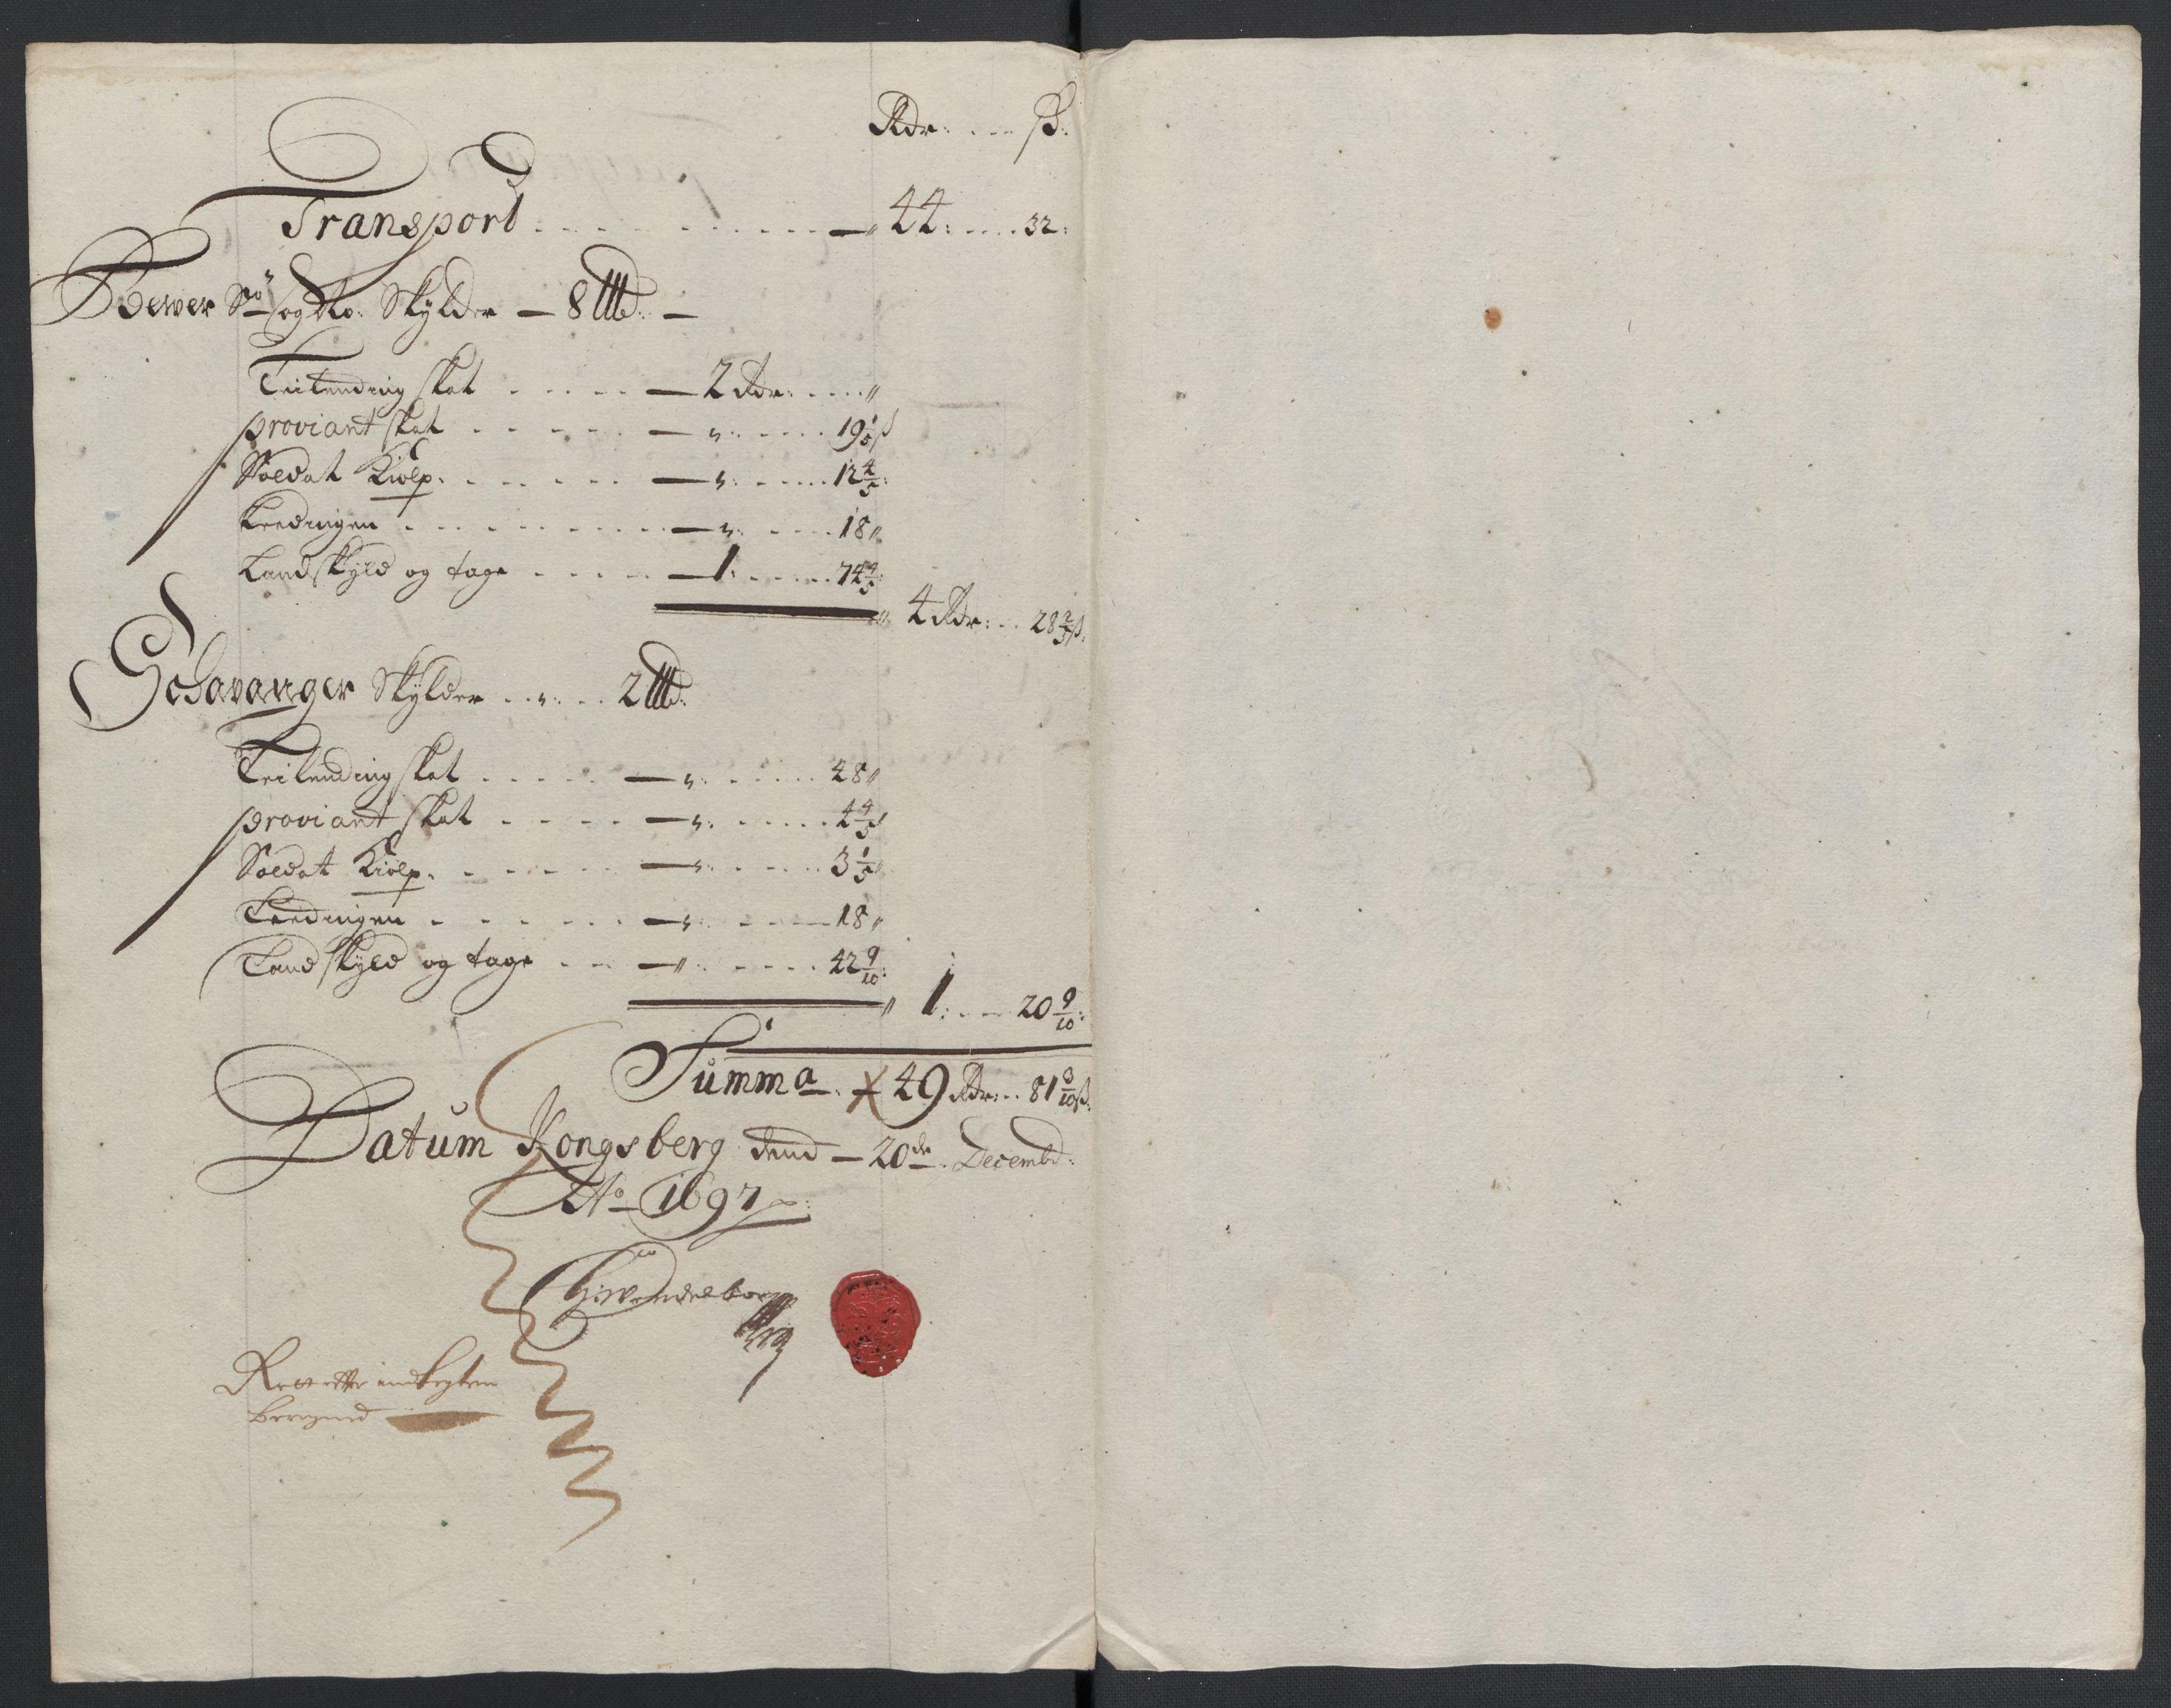 Rdr: ... ß:
Transport . . . . . . . . . . — 44: .... 32:
Bewer Søe og Ko: Skylder — 8 Lld: —
Leilending skat . . . . — 2 Rdr: .... "
proviant skat . . . . — ": .... 19 1/5 ß
Soldat Hielp . . . . . — ": .... 12 4/5:
Leedingen . . . . . . . — ": .... 18 "
Landskyld og tage . . . . — 1: .... 74 2/5:
4 Rdr: .. 28 2/5 ß:
Schavanger Skylder .. ": .. 2 Lld:
Leilending skat . . . . — ": .... 48 "
proviant skat . . . . — ": .... 4 4/5
Soldat Hielp . . . . . — ": .... 3 1/5
Leedingen . . . . . — ": .... 18 "
Landskyld og tage . . — ": .... 42 9/10:
1: ... 20 9/10:
Summa. 49 Rdr: .. 81 3/10 ß:
Datum Kongsberg dend — 20de. Decembr:
Ao 1697